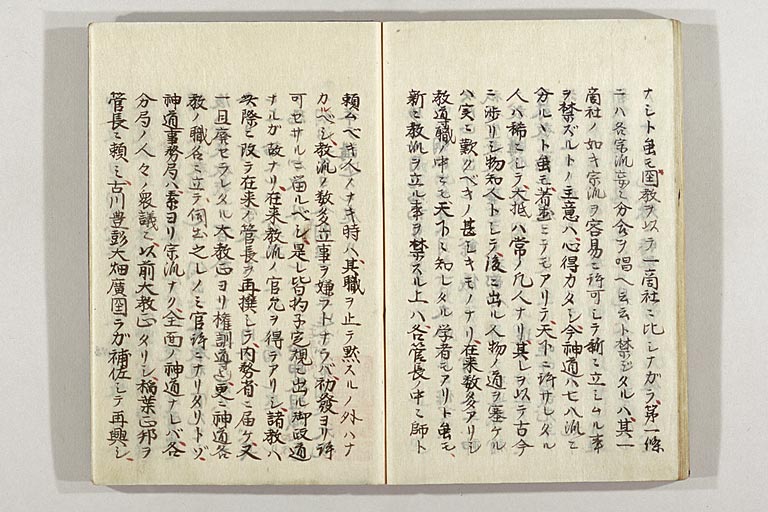 ナシト雖モ国教ヲ以テ一商社ニ比シナガラ、第一條
ニハ各宗派忘ニ分合ヲ唱ヘ云云ト禁ジタルハ、其一
商社ノ如キ宗派ヲ容易ニ許可シテ新ニ立シムル事
ヲ禁ズルトノ主意ハ心得カタシ今神道ハ七八派ニ
分ルハト雖モ著並ニテモアリテ天下ニ許サレタル
人ハ稀ニシテ大抵ハ常ノ凡人ナリ其レヲ以テ古今
ニ渉リシ物知人トシテ後ニ出ル人物ノ道ヲ塞ケル
ハ実ニ歎クベキノ甚シキモノナリ、在来数多アリシ
教道職ノ中ニモ天下ニ知レタル学者モアリト雖モ、
新ニ教派ヲ立ル事ヲ禁スル上ハ各管長ノ中ニ師ト
頼ムベキ人ノナキ時ハ、其職ヲ止テ黙スルノ外ハナ
カルベシ教派ノ数多立事ヲ嫌フトナラバ初發ヨリ許
可セサルニ留ルベシ、是レ皆杓子定規ニ出ル御政道
ナルガ故ナリ、在来教派ノ官允ヲ得テアリシ諸教ハ
実際ニ改テ在来ノ管長ヲ再撰シテ、内務省ニ届ケ、又
一旦廃セラレタル大教正ヨリ権訓道迄、更ニ神道各
教ノ職名ニ立テ伺出之レノミ官許ニナリタリトゾ、
神道事務局ハ素ヨリ宗派ナク全面ノ神道ナレバ各
分局ノ人々ノ衆議ニ、以前大教正タリシ稲葉正邦ヲ
管長ニ頼ミ、古川豊彭大畑廣国ラガ補佐シテ再興シ、